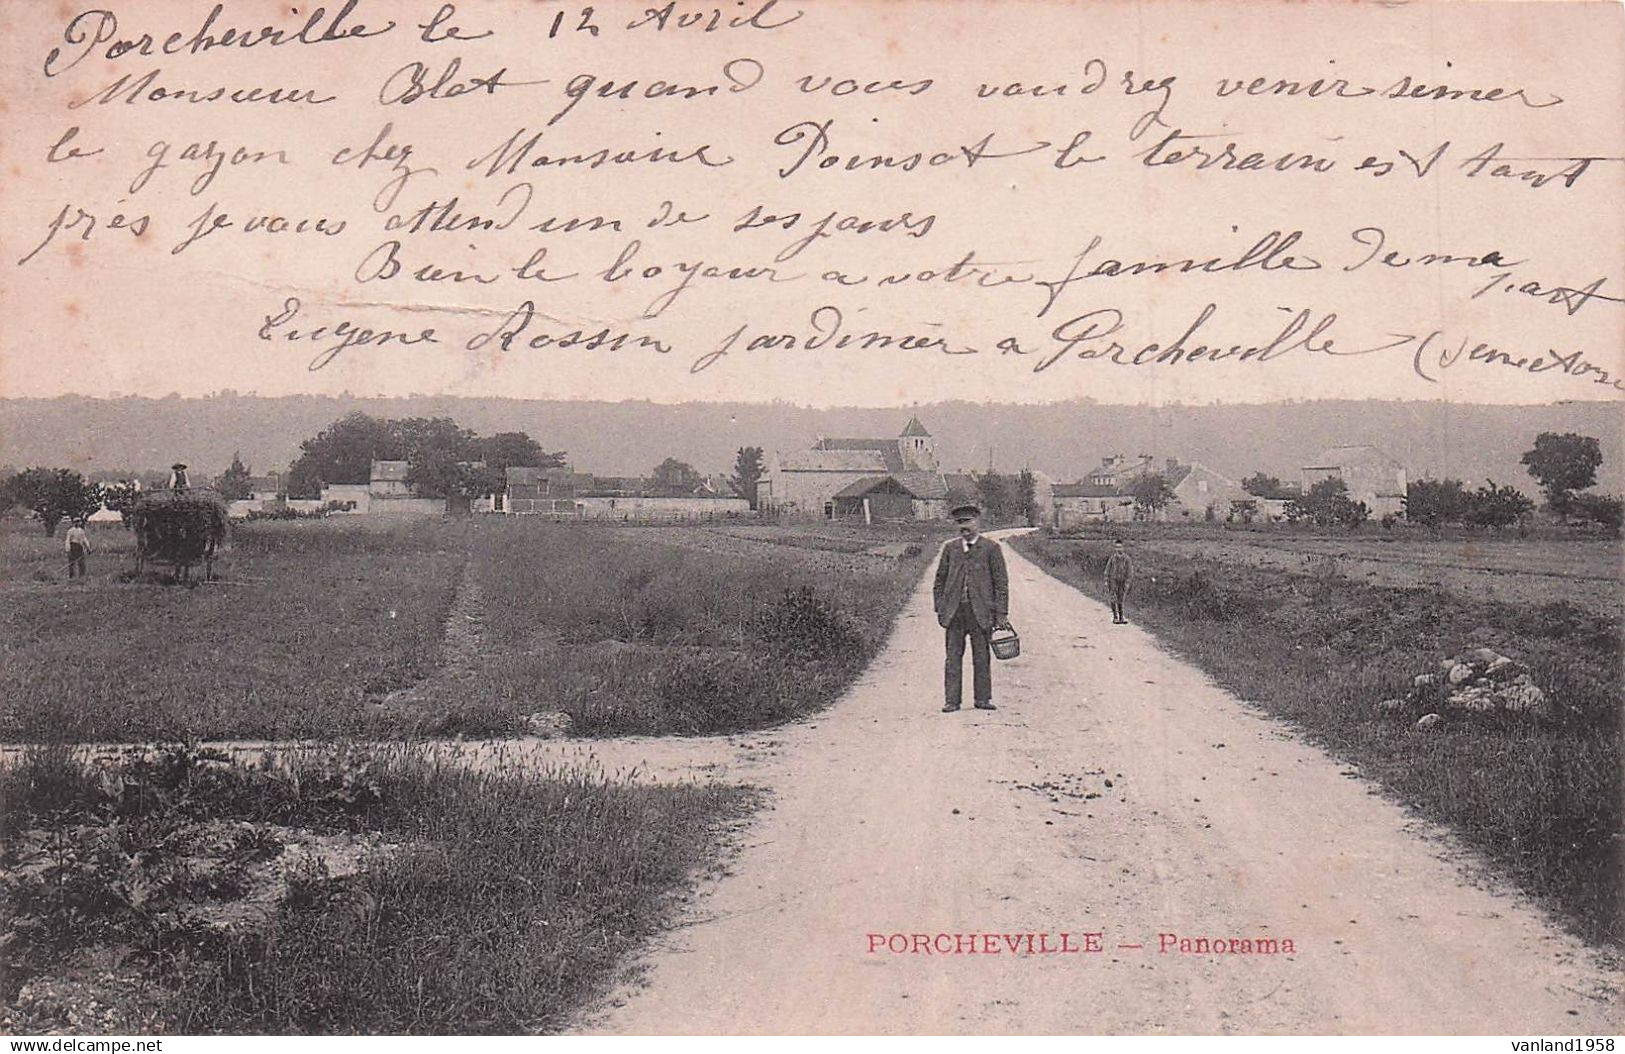 Porcheville le 12 Avril
Monsieur Blot quand vous voudrez venir semer
le gazon chez Monsieur Poinsot le terrain est tout
près je vous attend un de ses jours
Bien le boyour a votre famille de ma
part
Eugene Rossin jardinier a Porcheville (Seine et Oise
PORCHEVILLE — Panorama
www.delcampe.net
vanland1958